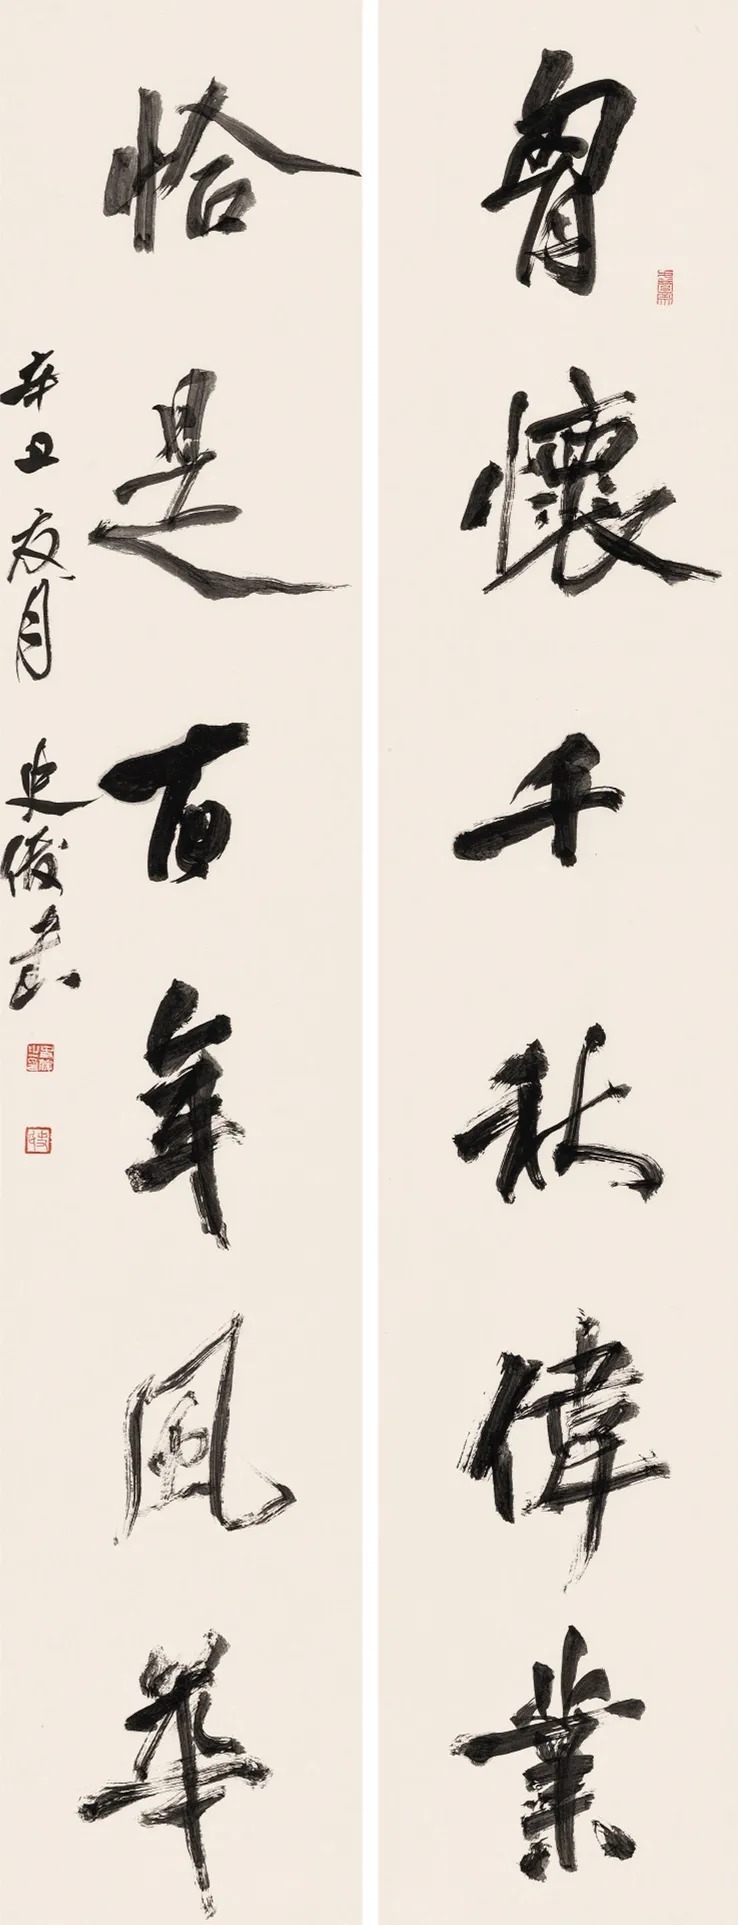 胷懷千秋偉業
恰是百年風華
辛丑夏月 史俊書